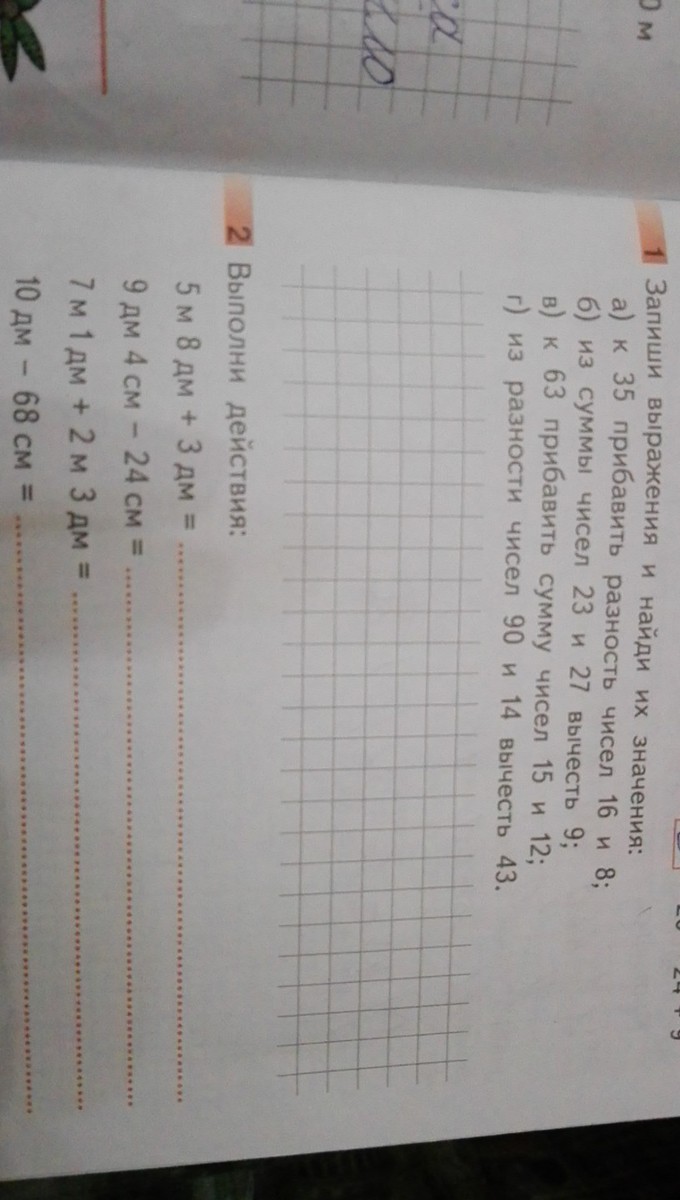 0 м
1 Запиши выражения и найди их значения:
а) к 35 прибавить разность чисел 16 и 8;
б) из суммы чисел 23 и 27 вычесть 9;
в) к 63 прибавить сумму чисел 15 и 12;
г) из разности чисел 90 и 14 вычесть 43.
2 Выполни действия:
5 м 8 дм + 3 дм =
9 дм 4 см – 24 см =
7 м 1 дм + 2 м 3 дм =
10 дм – 68 см =